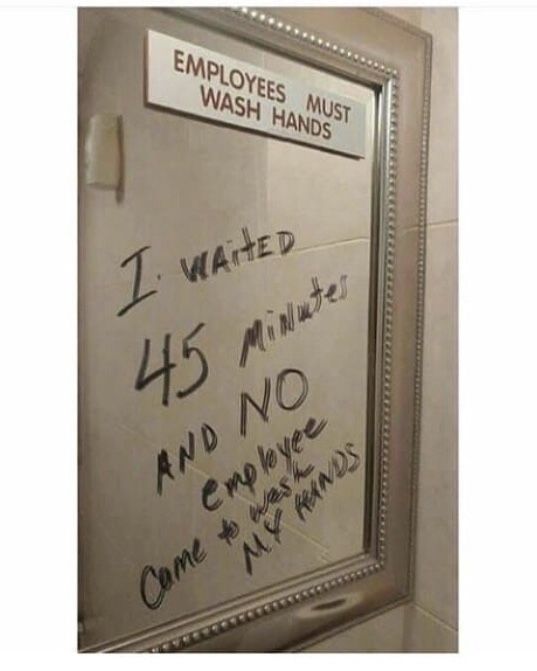 EMPLOYEES MUST
WASH HANDS
I WAITED
45 MiNutes
AND NO
employee
Came to wash
MY HANDS